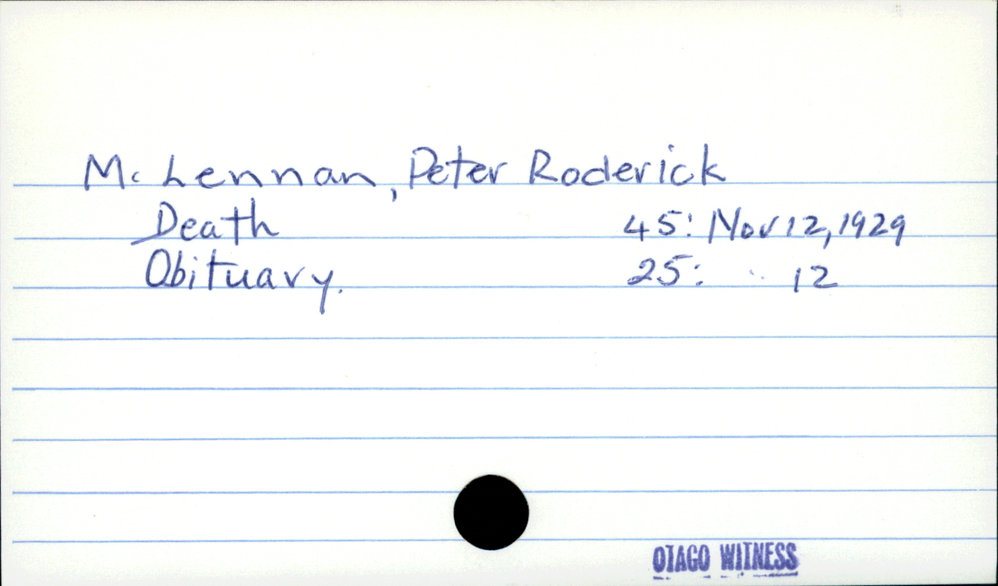 Mc Lennan, Peter Roderick
Death 45: Nov 12, 1929
Obituary. 25: " 12
OTAGO WITNESS